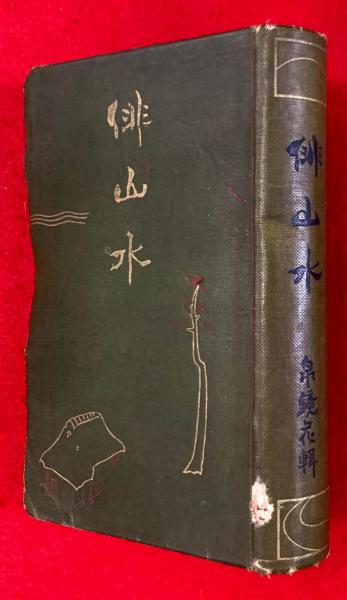 俳山水
俳山水
泉鏡花輯